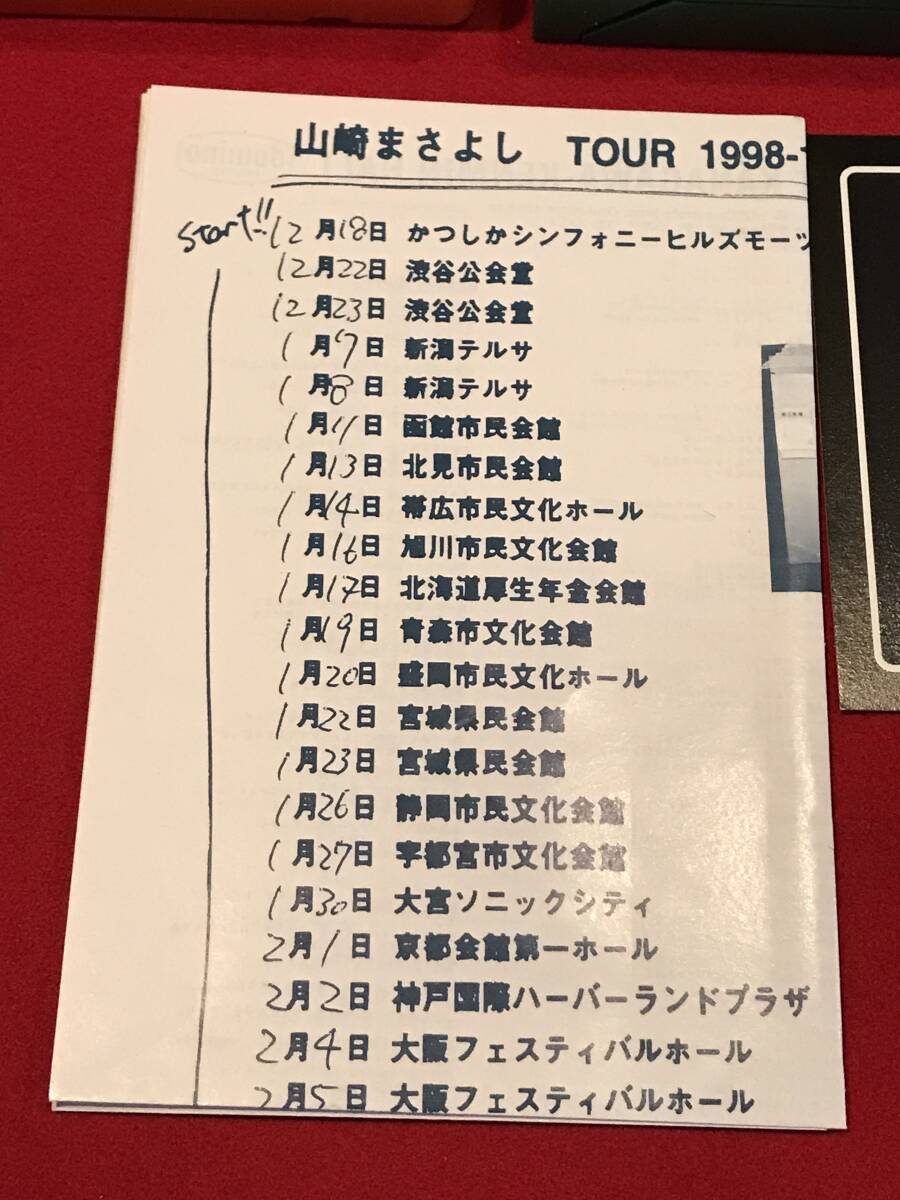 山崎まさよし TOUR 1998-
start!! 12月18日 かつしかシンフォニーヒルズモーツ
12月22日 渋谷公会堂
12月23日 渋谷公会堂
1月7日 新潟テルサ
1月8日 新潟テルサ
1月11日 函館市民会館
1月13日 北見市民会館
1月14日 帯広市民文化ホール
1月16日 旭川市民文化会館
1月17日 北海道厚生年金会館
1月19日 青森市文化会館
1月20日 盛岡市民文化ホール
1月22日 宮城県民会館
1月23日 宮城県民会館
1月26日 静岡市民文化会館
1月27日 宇都宮市文化会館
1月30日 大宮ソニックシティ
2月1日 京都会館第一ホール
2月2日 神戸国際ハーバーランドプラザ
2月4日 大阪フェスティバルホール
2月5日 大阪フェスティバルホール